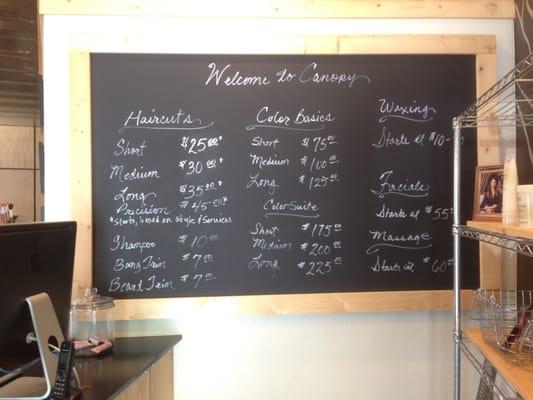 Welcome to Canopy
Haircuts
Short $25.00*
Medium $30.00*
Long $35.00*
Precision $45.00*
*starts, based on style & services
Shampoo $10.00
Bang Trim $7.00
Beard Trim $7.00
Color Basics
Short $75.00
Medium $100.00
Long $125.00
Color Suite
Short $175.00
Medium $200.00
Long $225.00
Waxing
Starts at $10-
Facials
Starts at $55
Massage
Starts at $60.00